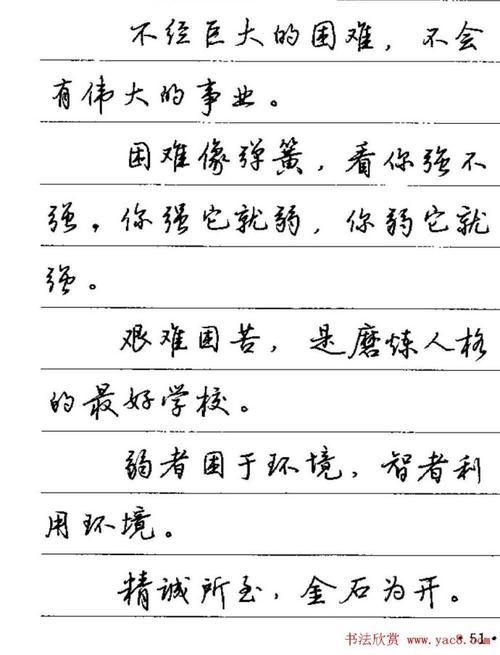 不经巨大的困难，不会
有伟大的事业。
困难像弹簧，看你强不
强，你强它就弱，你弱它就
强。
艰难困苦，是磨炼人格
的最好学校。
弱者困于环境，智者利
用环境。
精诚所至，金石为开。
·51·
书法欣赏 www.yac8.com